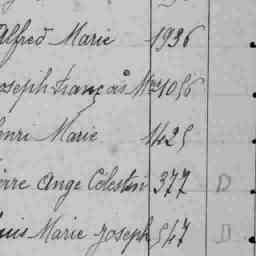 Alfred Marie 1936
Joseph François Mie 1056
Henri Marie 1425
Pierre Ange Célestin 377 D
Louis Marie Joseph 547 D